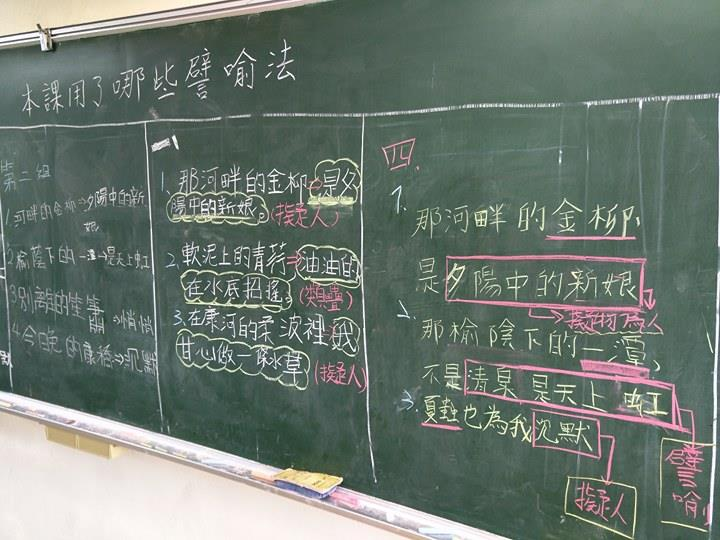 本課用了哪些譬喻法
第二組
1.河畔的金柳⇒夕陽中的新
娘
2.榆蔭下的一潭⇒是天上虹
3.別離的笙簫⇒悄悄
4.今晚的康橋⇒沉默
1.那河畔的金柳⇒是夕
陽中的新娘。(擬人)
2.軟泥上的青荇⇒油油的
在水底招搖；(類疊)
3.在康河的柔波裡
甘心做一條水草(擬人)
四
1.
那河畔的金柳,
是夕陽中的新娘
擬物為人
2.
那榆陰下的一潭,
不是清泉 是天上虹
3.夏蟲也為我沉默
擬人
譬喻